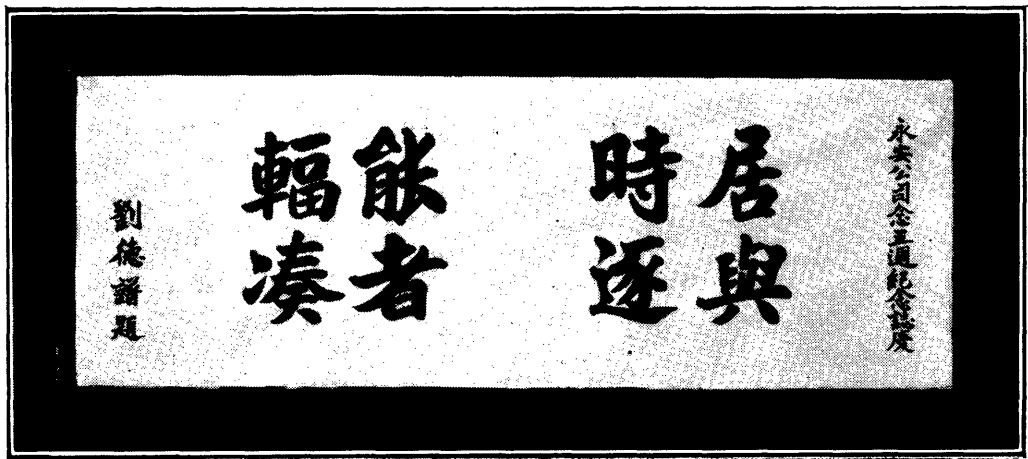 永安公司念五週紀念誌慶
居與
時逐
能者
輻凑
劉德譜題